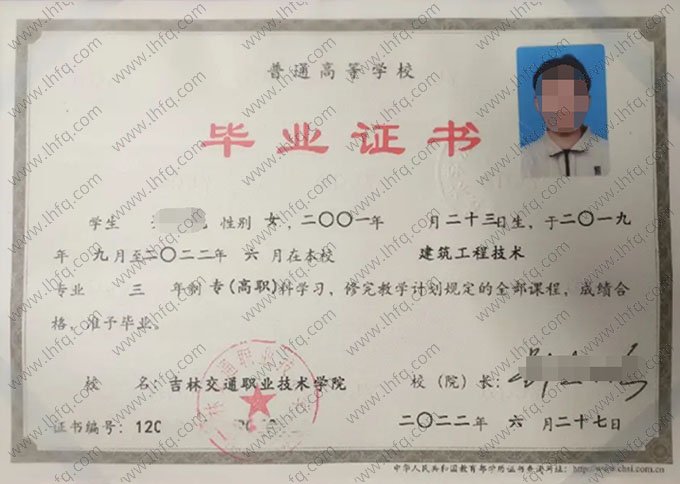 普通高等学校
毕业证书
学生 性别 女，二〇〇一年 月二十三日生，于二〇一九
年 九月至二〇二二年 六 月在本校 建筑工程技术
专业 三 年制 专(高职)科学习，修完教学计划规定的全部课程，成绩合
格，准予毕业。
校 名：吉林交通职业技术学院 校（院）长：
证书编号：120
二〇二二年 六 月二十七日
中华人民共和国教育部学历证书查询网址：http://www.chsi.com.cn
www.lhfq.com